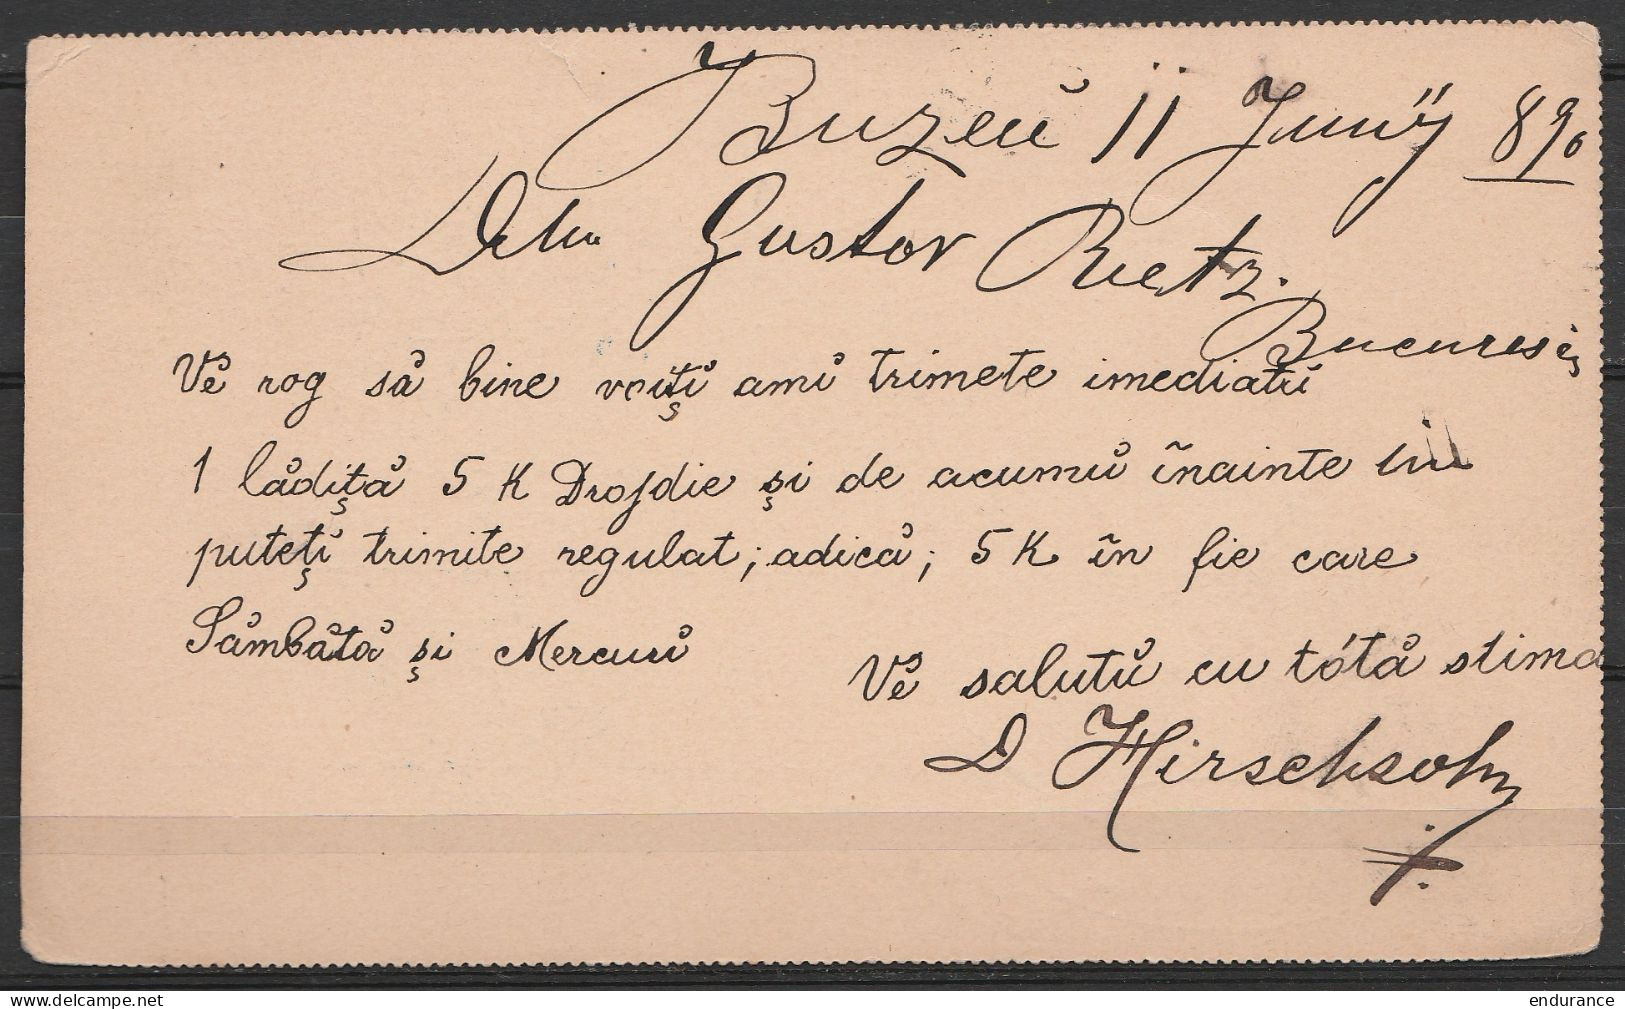 Buzeŭ 11 Junÿ 890
Gustav Rietz.
Bucuresci
Vĕ rog să bine voițĭ amĭ trimete imediatŭ
1 lădiță 5 K Drojdie și de acumŭ înainte îmi
putețĭ trimite regulat; adică; 5 K în fie care
Sâmbătă și Mercurĭ
Vĕ salutŭ cu tótă stima
D Hirschsohn
endurance